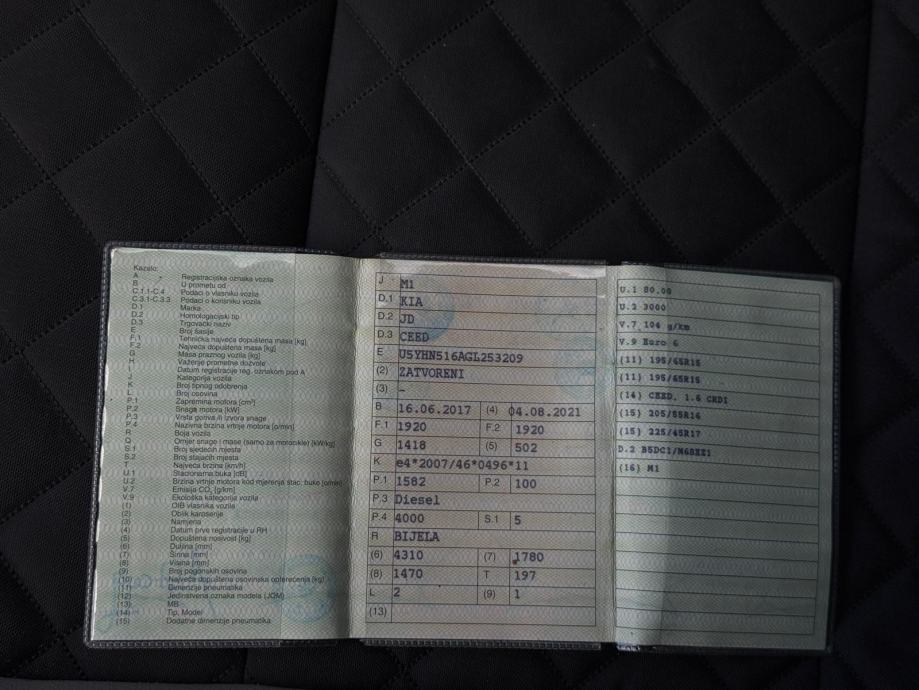 Kazalo:
A Registracijska oznaka vozila
B U prometu od
C.1.1-C.4 Podaci o vlasniku vozila
C.3.1-C.3.3 Podaci o korisniku vozila
D.1 Marka
D.2 Homologacijski tip
D.3 Trgovački naziv
E Broj šasije
F.1 Tehnička najveća dopuštena masa [kg]
F.2 Najveća dopuštena masa [kg]
G Masa praznog vozila [kg]
H Važenje prometne dozvole
I Datum registracije reg. oznakom pod A
J Kategorija vozila
K Broj tipnog odobrenja
L Broj osovina
P.1 Zapremina motora [cm³]
P.2 Snaga motora [kW]
P.3 Vrsta goriva ili izvora snage
P.4 Nazivna brzina vrtnje motora [o/min]
R Boja vozila
Q Omjer snage i mase (samo za motocikle) [kW/kg]
S.1 Broj sjedećih mjesta
S.2 Broj stajaćih mjesta
T Najveća brzina [km/h]
U.1 Stacionarna buka [dB]
U.2 Brzina vrtnje motora kod mjerenja stac. buke [o/min]
V.7 Emisija CO₂ [g/km]
V.9 Ekološka kategorija vozila
(1) OIB vlasnika vozila
(2) Oblik karoserije
(3) Namjena
(4) Datum prve registracije u RH
(5) Dopuštena nosivost [kg]
(6) Duljina [mm]
(7) Širina [mm]
(8) Visina [mm]
(9) Broj pogonskih osovina
(10) Najveća dopuštena osovinska opterećenja [kg]
(11) Dimenzije pneumatika
(12) Jedinstvena oznaka modela (JOM)
(13) MB
(14) Tip, Model
(15) Dodatne dimenzije pneumatika
J M1
D.1 KIA
D.2 JD
D.3 CEED
E U5YHN516AGL253209
(2) ZATVORENI
(3) –
B 16.06.2017 (4) 04.08.2021
F.1 1920 F.2 1920
G 1418 (5) 502
K e4*2007/46*0496*11
P.1 1582 P.2 100
P.3 Diesel
P.4 4000 S.1 5
R BIJELA
(6) 4310 (7) 1780
(8) 1470 T 197
L 2 (9) 1
(13)
U.1 80.00
U.2 3000
V.7 104 g/km
V.9 Euro 6
(11) 195/65R15
(11) 195/65R15
(14) CEED, 1.6 CRDI
(15) 205/55R16
(15) 225/45R17
D.2 B5DC1/M68ZZ1
(16) M1